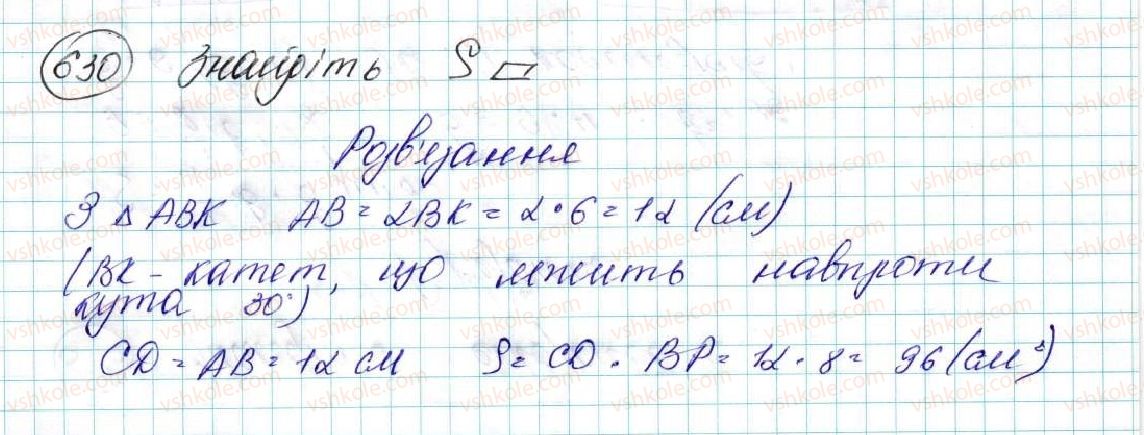 630 Знайдіть S ▱
Розв'язання
З Δ ABK AB = 2BK = 2 · 6 = 12 (см)
(BK - катет, що лжить навпроти
кута 30°)
CD = AB = 12 см S = CD · BP = 12 · 8 = 96 (см²)